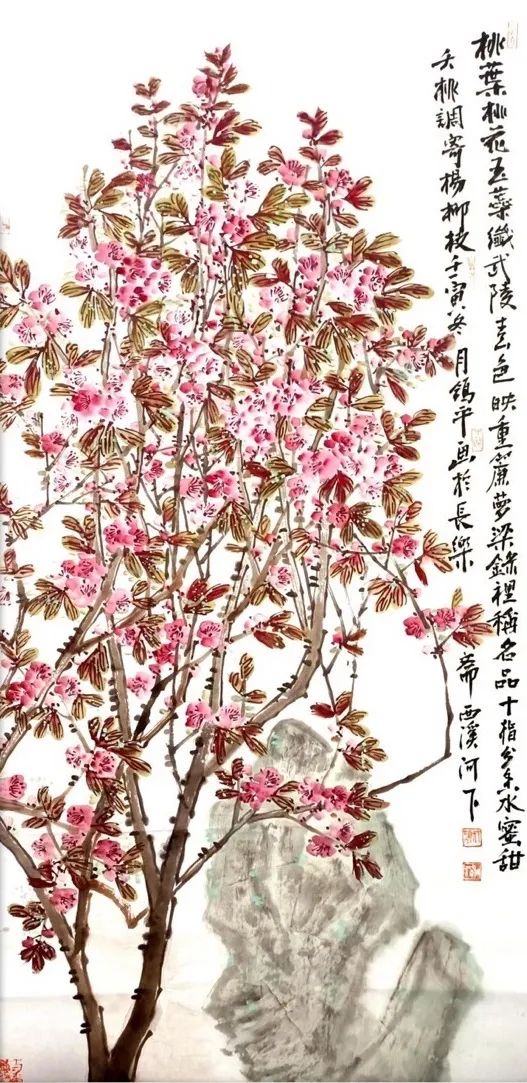 桃葉桃花玉蘂纖武陵春色映重簾夢梁錄裡稱名品十指分來水蜜甜
夭桃調寄楊柳枝壬寅冬月鴿平画於長樂齋西溪河下